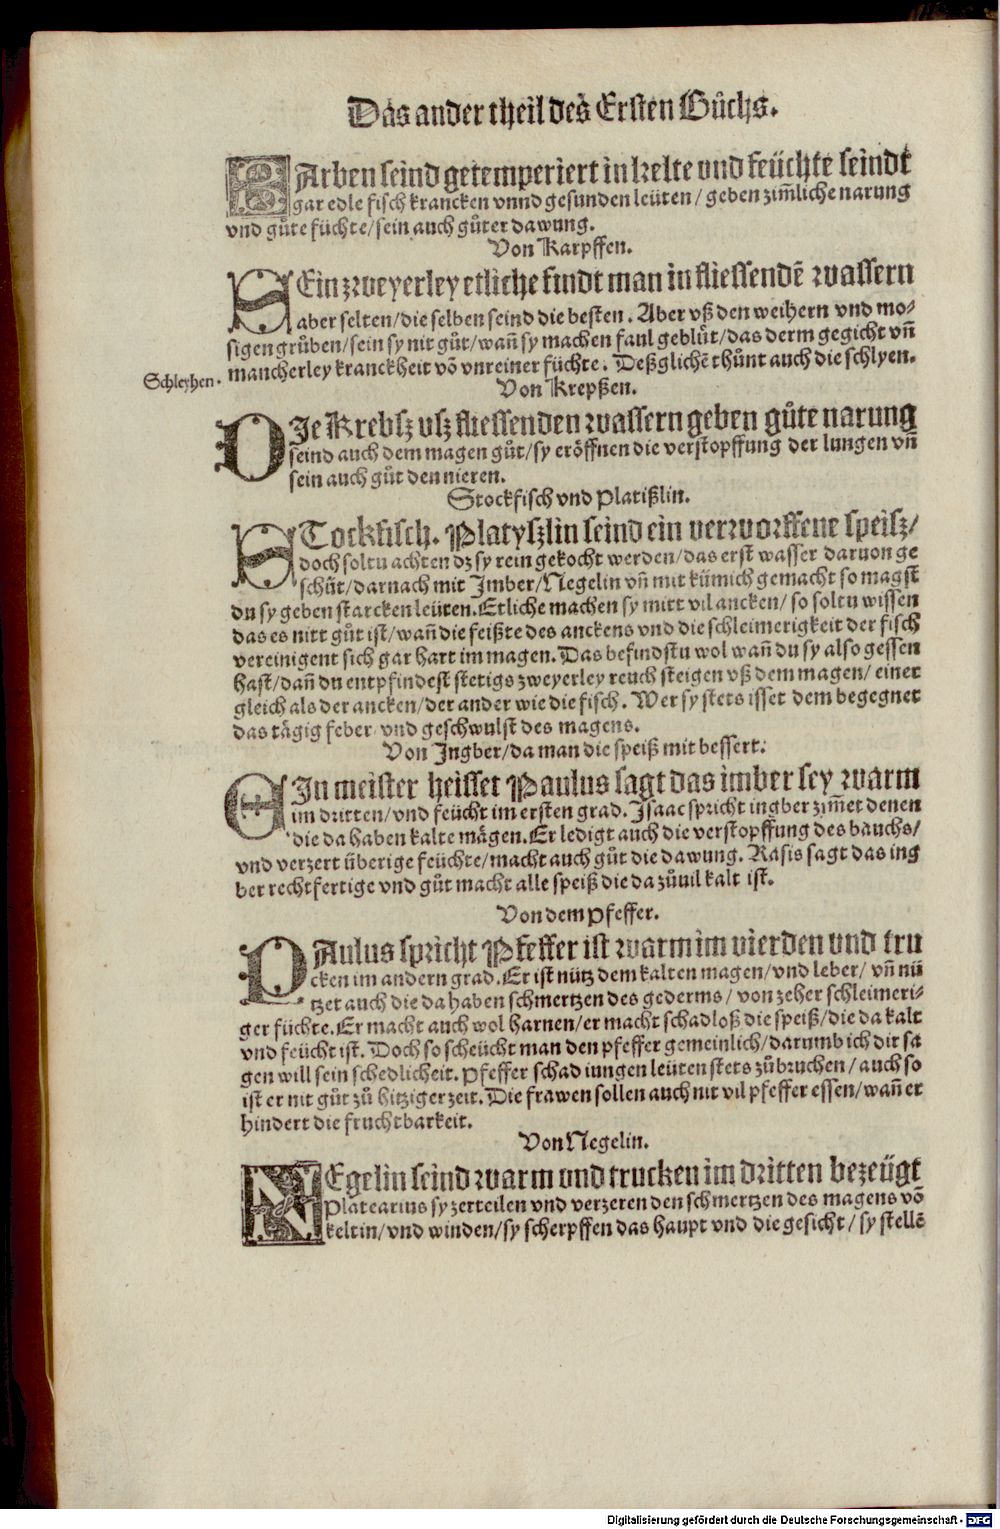 Das ander theil des Ersten Bůchs.
BArben seind getemperiert in kelte vnd feüchte seindt
gar edle fisch krancken vnnd gesunden leüten / geben zim̃liche narung
vnd gůte füchte / sein auch gůter dawung.
Von Karpffen.
SEin zweyerley etliche findt man in fliessendẽ wassern
aber selten / die selben seind die besten. Aber vß den weihern vnd mo-
sigen grůben / sein sy nit gůt / wañ sy machen faul geblůt / das derm gegicht vñ
mancherley kranckheit võ vnreiner füchte. Deßglichẽ thůnt auch die schlyen.
Schleyhen.
Von Krepßen.
DIe Krebsz vsz fliessenden wassern geben gůte narung
seind auch dem magen gůt / sy eröffnen die verstopffung der lungen vñ
sein auch gůt den nieren.
Stockfisch vnd Platißlin.
STockfisch. Platyszlin seind ein verworffene speisz /
doch soltu achten dz sy rein gekocht werden / das erst wasser daruon ge
schüt / darnach mit Imber / Negelin vñ mit kümich gemacht so magst
du sy geben starcken leüten. Etliche machen sy mitt vil ancken / so soltu wissen
das es nitt gůt ist / wañ die feißte des anckens vnd die schleimerigkeit der fisch
vereinigent sich gar hart im magen. Das befindstu wol wañ du sy also gessen
hast / dañ du entpfindest stetigs zweyerley reuch steigen vß dem magen / einer
gleich als der ancken / der ander wie die fisch. Wer sy stets isset dem begegnet
das tägig feber vnd geschwulst des magens.
Von Ingber / da man die speiß mit bessert.
EIn meister heisset Paulus sagt das imber sey warm
im dritten / vnd feücht im ersten grad. Isaac spricht ingber zim̃et denen
die da haben kalte mägen. Er ledigt auch die verstopffung des bauchs /
vnd verzert überige feüchte / macht auch gůt die dawung. Rasis sagt das ing
ber rechtfertige vnd gůt macht alle speiß die da zůuil kalt ist.
Von dem Pfeffer.
PAulus spricht Pfeffer ist warm im vierden vnd tru
cken im andern grad. Er ist nütz dem kalten magen / vnd leber / vñ nü
tzet auch die da haben schmertzen des gederms / von zeher schleimeri-
ger füchte. Er macht auch wol harnen / er macht schadloß die speiß / die da kalt
vnd feücht ist. Doch so scheücht man den pfeffer gemeinlich / darumb ich dir sa
gen will sein schedlicheit. Pfeffer schad iungen leüten stets zůbruchen / auch so
ist er nit gůt zů hitziger zeit. Die frawen sollen auch nit vil pfeffer essen / wañ er
hindert die fruchtbarkeit.
Von Negelin.
NEgelin seind warm vnd trucken im dritten bezeügt
Platearius sy zerteilen vnd verzeren den schmertzen des magens võ
keltin / vnd winden / sy scherpffen das haupt vnd die gesicht / sy stellẽ
Digitalisierung gefördert durch die Deutsche Forschungsgemeinschaft - DFG